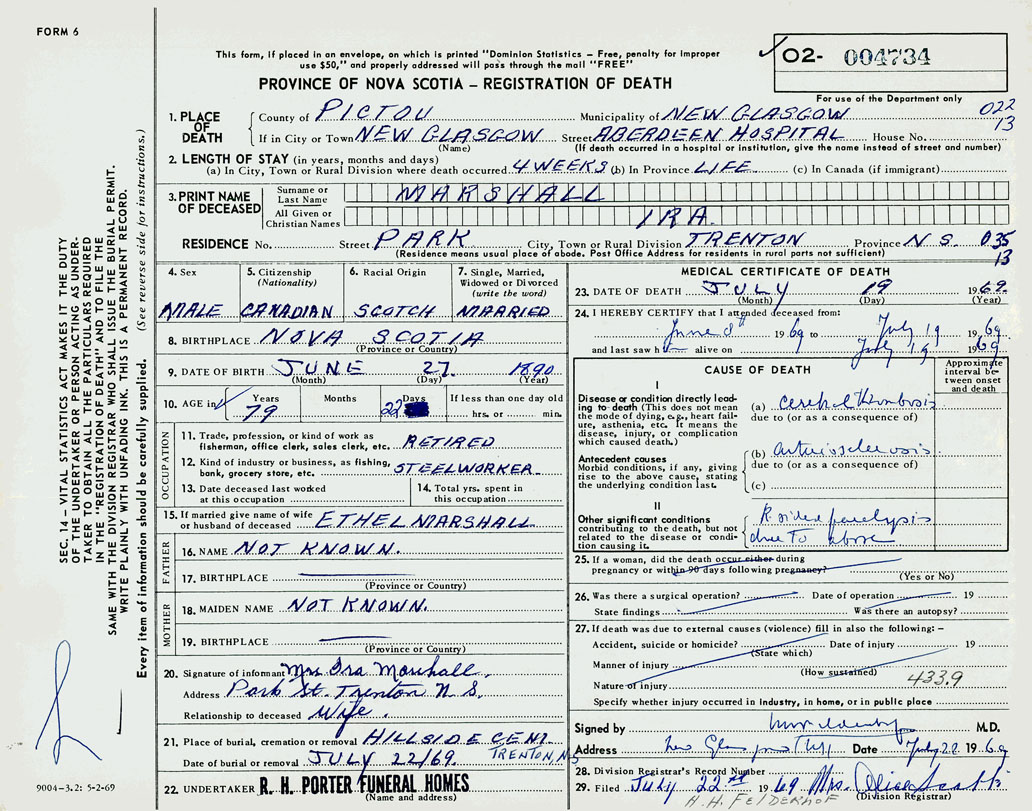 FORM 6
This form, if placed in an envelope, on which is printed "Dominion Statistics – Free, penalty for improper
use $50," and properly addressed will pass through the mail "FREE"
✓ 02- 004734
PROVINCE OF NOVA SCOTIA – REGISTRATION OF DEATH
For use of the Department only
1. PLACE OF DEATH
County of PICTOU Municipality of NEW GLASGOW 022
If in City or Town NEW GLASGOW Street ABERDEEN HOSPITAL House No. 13
(Name) (If death occurred in a hospital or institution, give the name instead of street and number)
2. LENGTH OF STAY (in years, months and days)
(a) In City, Town or Rural Division where death occurred 4 WEEKS (b) In Province LIFE (c) In Canada (if immigrant)
3. PRINT NAME OF DECEASED
Surname or Last Name MARSHALL
All Given or Christian Names IRA.
RESIDENCE No. Street PARK City, Town or Rural Division TRENTON Province N S. 035
(Residence means usual place of abode. Post Office Address for residents in rural parts not sufficient) 13
4. Sex
MALE
5. Citizenship (Nationality)
CANADIAN
6. Racial Origin
SCOTCH
7. Single, Married, Widowed or Divorced (write the word)
MARRIED
8. BIRTHPLACE NOVA SCOTIA
(Province or Country)
9. DATE OF BIRTH JUNE 27 1890
(Month) (Day) (Year)
10. AGE in Years Months Days If less than one day old
79 22 hrs. or min.
OCCUPATION
11. Trade, profession, or kind of work as
fisherman, office clerk, sales clerk, etc. RETIRED
12. Kind of industry or business, as fishing,
bank, grocery store, etc. STEELWORKER
13. Date deceased last worked
at this occupation
14. Total yrs. spent in
this occupation
15. If married give name of wife
or husband of deceased ETHEL MARSHALL
FATHER
16. NAME NOT KNOWN.
17. BIRTHPLACE
(Province or Country)
MOTHER
18. MAIDEN NAME NOT KNOWN.
19. BIRTHPLACE
(Province or Country)
20. Signature of informant Mrs Ira Marshall.
Address Park St. Trenton N. S.
Relationship to deceased Wife.
21. Place of burial, cremation or removal HILLSIDE CEM.
TRENTON, N.S
Date of burial or removal JULY 22/69.
22. UNDERTAKER R. H. PORTER FUNERAL HOMES
(Name and address)
MEDICAL CERTIFICATE OF DEATH
23. DATE OF DEATH JULY 19 1969.
(Month) (Day) (Year)
24. I HEREBY CERTIFY that I attended deceased from:
June 8th 1969 to July 19 1969
and last saw h alive on July 19 1969
CAUSE OF DEATH
Approximate interval between onset and death
I
Disease or condition directly leading
to death (This does not mean
the mode of dying, e.g., heart failure,
asthenia, etc. It means the
disease, injury, or complication
which caused death.)
(a) cerebral thrombosis
due to (or as a consequence of)
Antecedent causes
Morbid conditions, if any, giving
rise to the above cause, stating
the underlying condition last.
(b) arteriosclerosis
due to (or as a consequence of)
(c)
II
Other significant conditions
contributing to the death, but not
related to the disease or condition
causing it.
R. sided paralysis
due to above
25. If a woman, did the death occur either during
pregnancy or within 90 days following pregnancy?
(Yes or No)
26. Was there a surgical operation? Date of operation 19
State findings Was there an autopsy?
27. If death was due to external causes (violence) fill in also the following: –
Accident, suicide or homicide? Date of injury 19
(State which)
Manner of injury
(How sustained)
Nature of injury 433.9
Specify whether injury occurred in industry, in home, or in public place
Signed by M.D.
Address New Glasgow Date July 22 1969
28. Division Registrar's Record Number
29. Filed July 22nd 1969 Mrs.
(Division Registrar)
H. H. FELDERHOF
SEC. 14 – VITAL STATISTICS ACT MAKES IT THE DUTY
OF THE UNDERTAKER OR PERSON ACTING AS UNDERTAKER
TO OBTAIN ALL THE PARTICULARS REQUIRED
IN THE "REGISTRATION OF DEATH" AND TO FILE THE
SAME WITH THE DIVISION REGISTRAR WHO SHALL ISSUE THE BURIAL PERMIT.
WRITE PLAINLY WITH UNFADING INK. THIS IS A PERMANENT RECORD.
Every item of information should be carefully supplied. (See reverse side for instructions.)
9004–3.2: 5-2-69